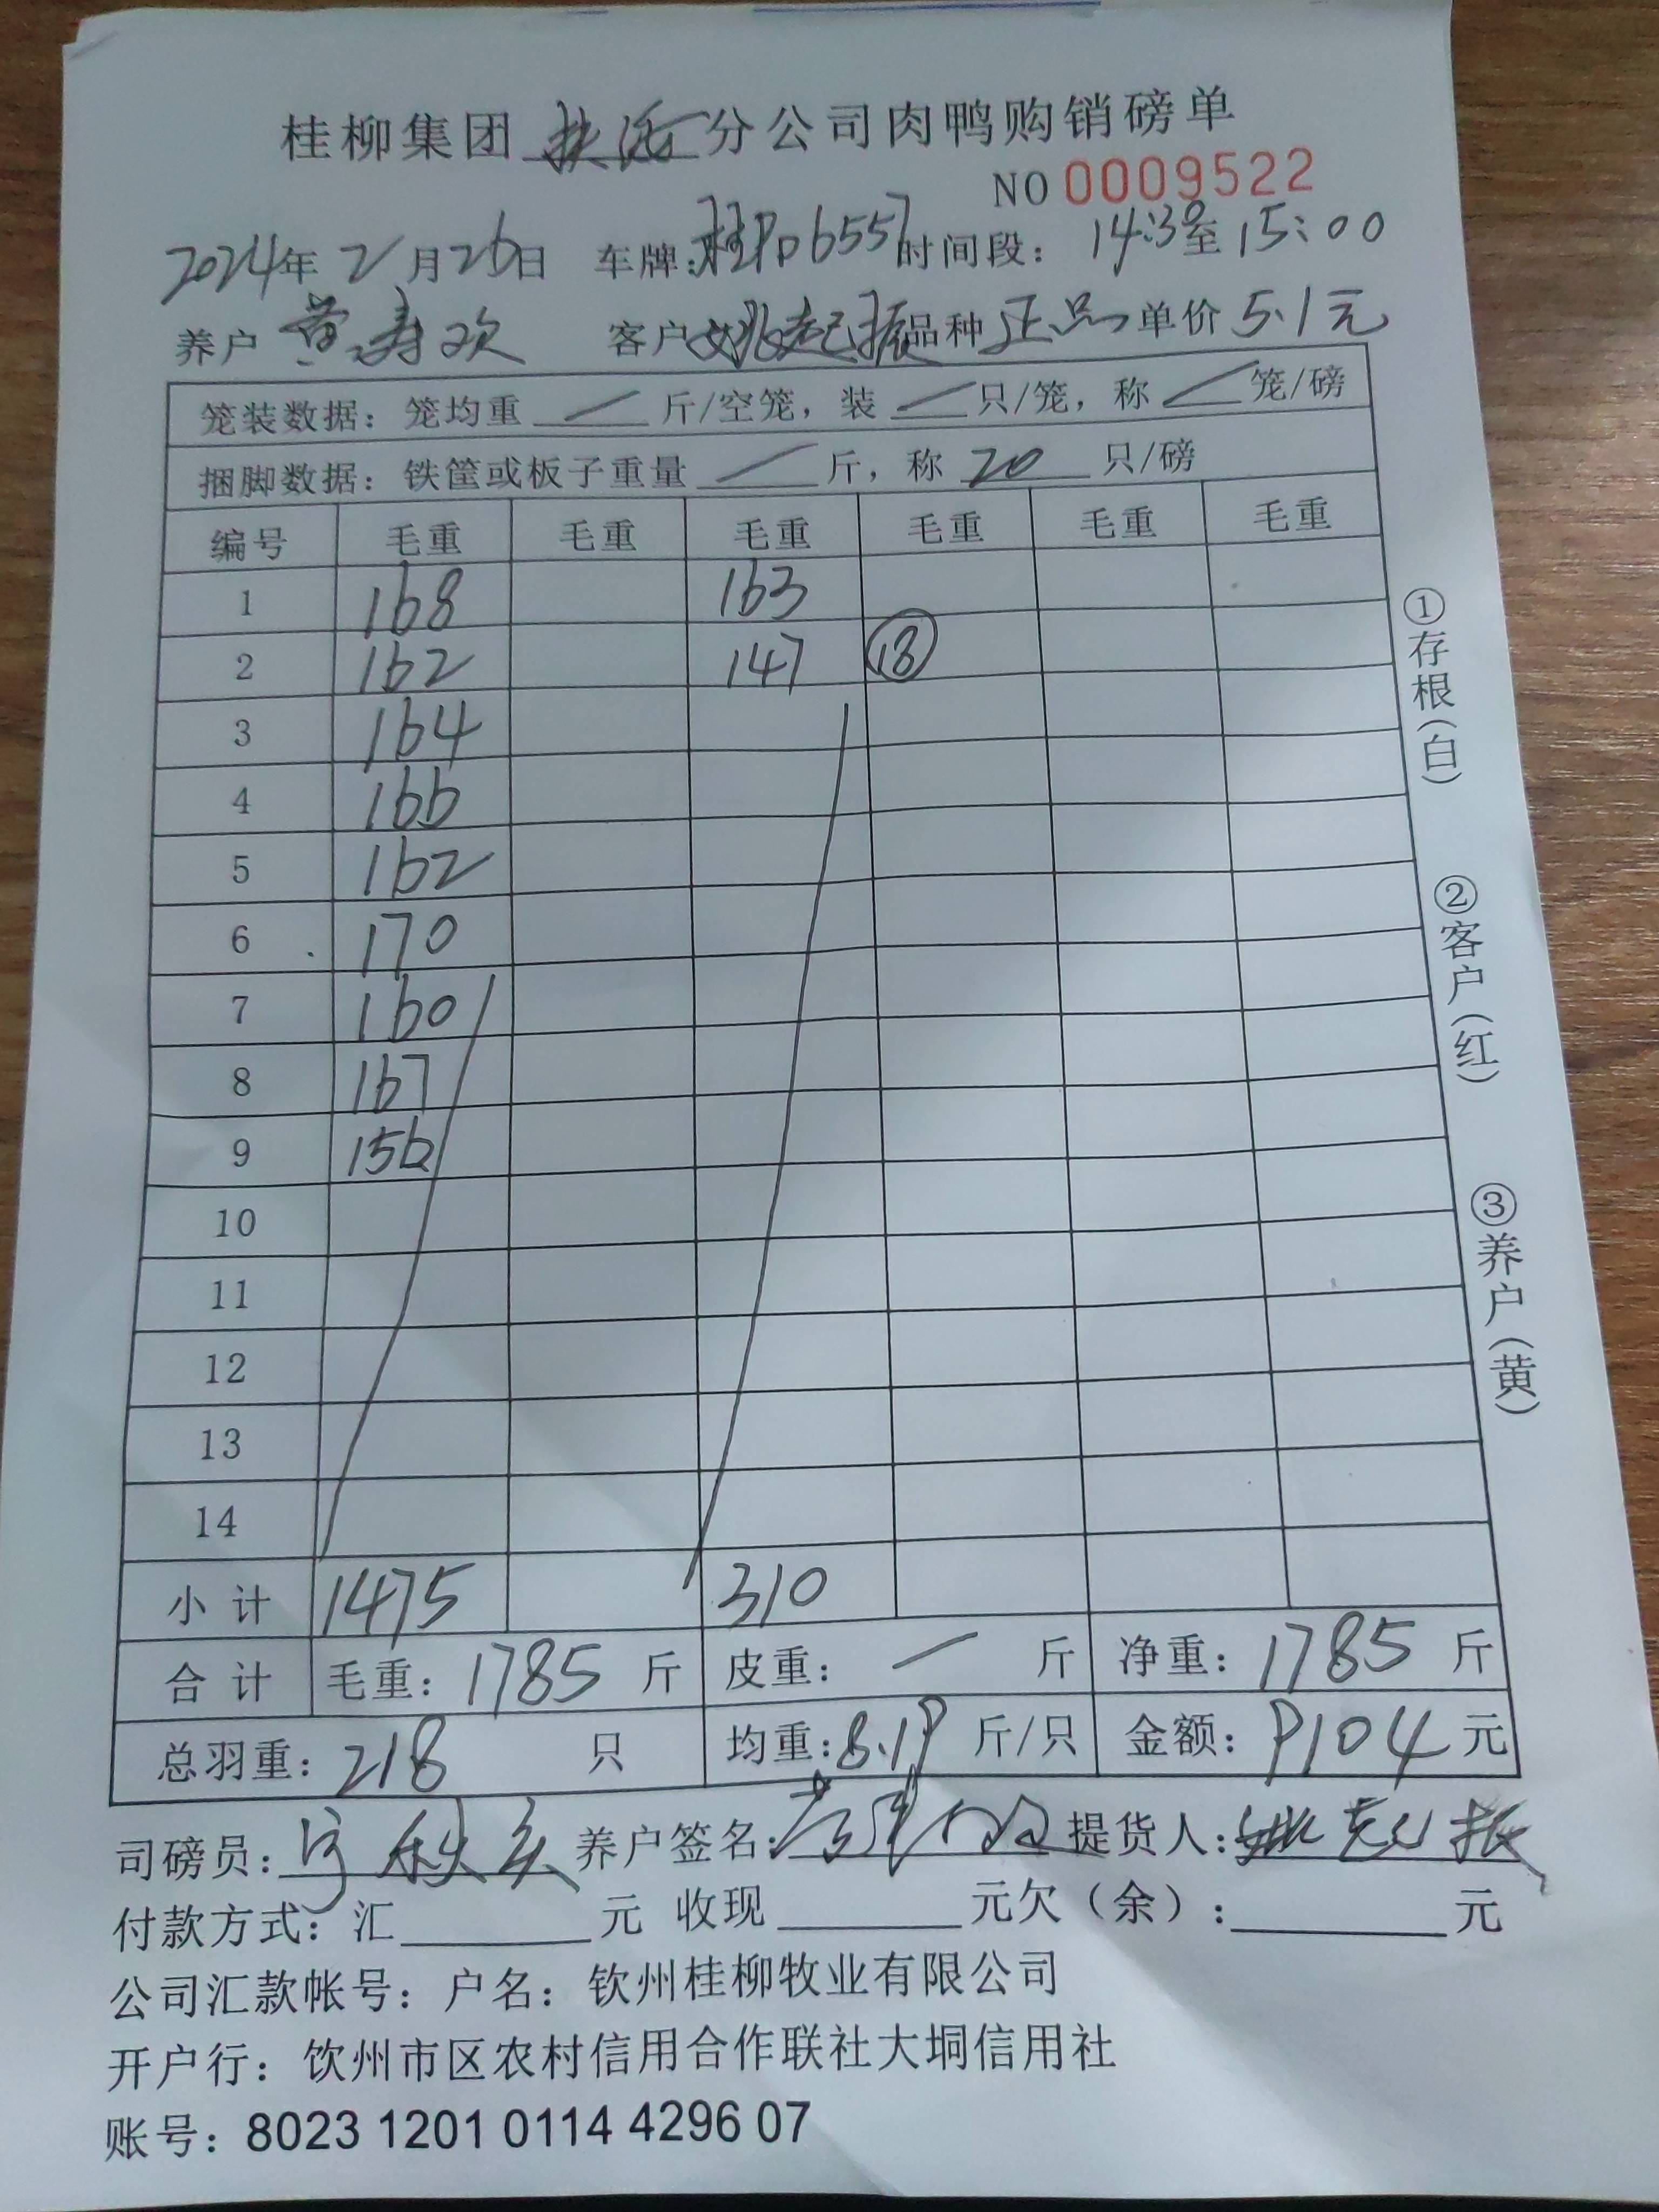 桂柳集团 分公司肉鸭购销磅单
NO 0009522
2024年2月26日 车牌:桂PD6557 时间段: 14:30至15:00
养户 黄寿欢 客户 姚起振 品种 正品 单价 5.1元
笼装数据: 笼均重 — 斤/空笼, 装 — 只/笼, 称 — 笼/磅
捆脚数据: 铁筐或板子重量 — 斤, 称 20 只/磅
编号 毛重 毛重 毛重 毛重 毛重 毛重
1 168 163
2 162 147 ⑱
3 164
4 166
5 162
6 170
7 160
8 167
9 156
10
11
12
13
14
小计 1475 310
合计 毛重: 1785 斤 皮重: — 斤 净重: 1785 斤
总羽重: 218 只 均重: 8.19 斤/只 金额: 9104 元
司磅员: 养户签名: 提货人: 姚起振
付款方式: 汇 元 收现 元欠(余): 元
公司汇款帐号: 户名: 钦州桂柳牧业有限公司
开户行: 饮州市区农村信用合作联社大垌信用社
账号: 8023 1201 0114 4296 07
①存根(白)
②客户(红)
③养户(黄)